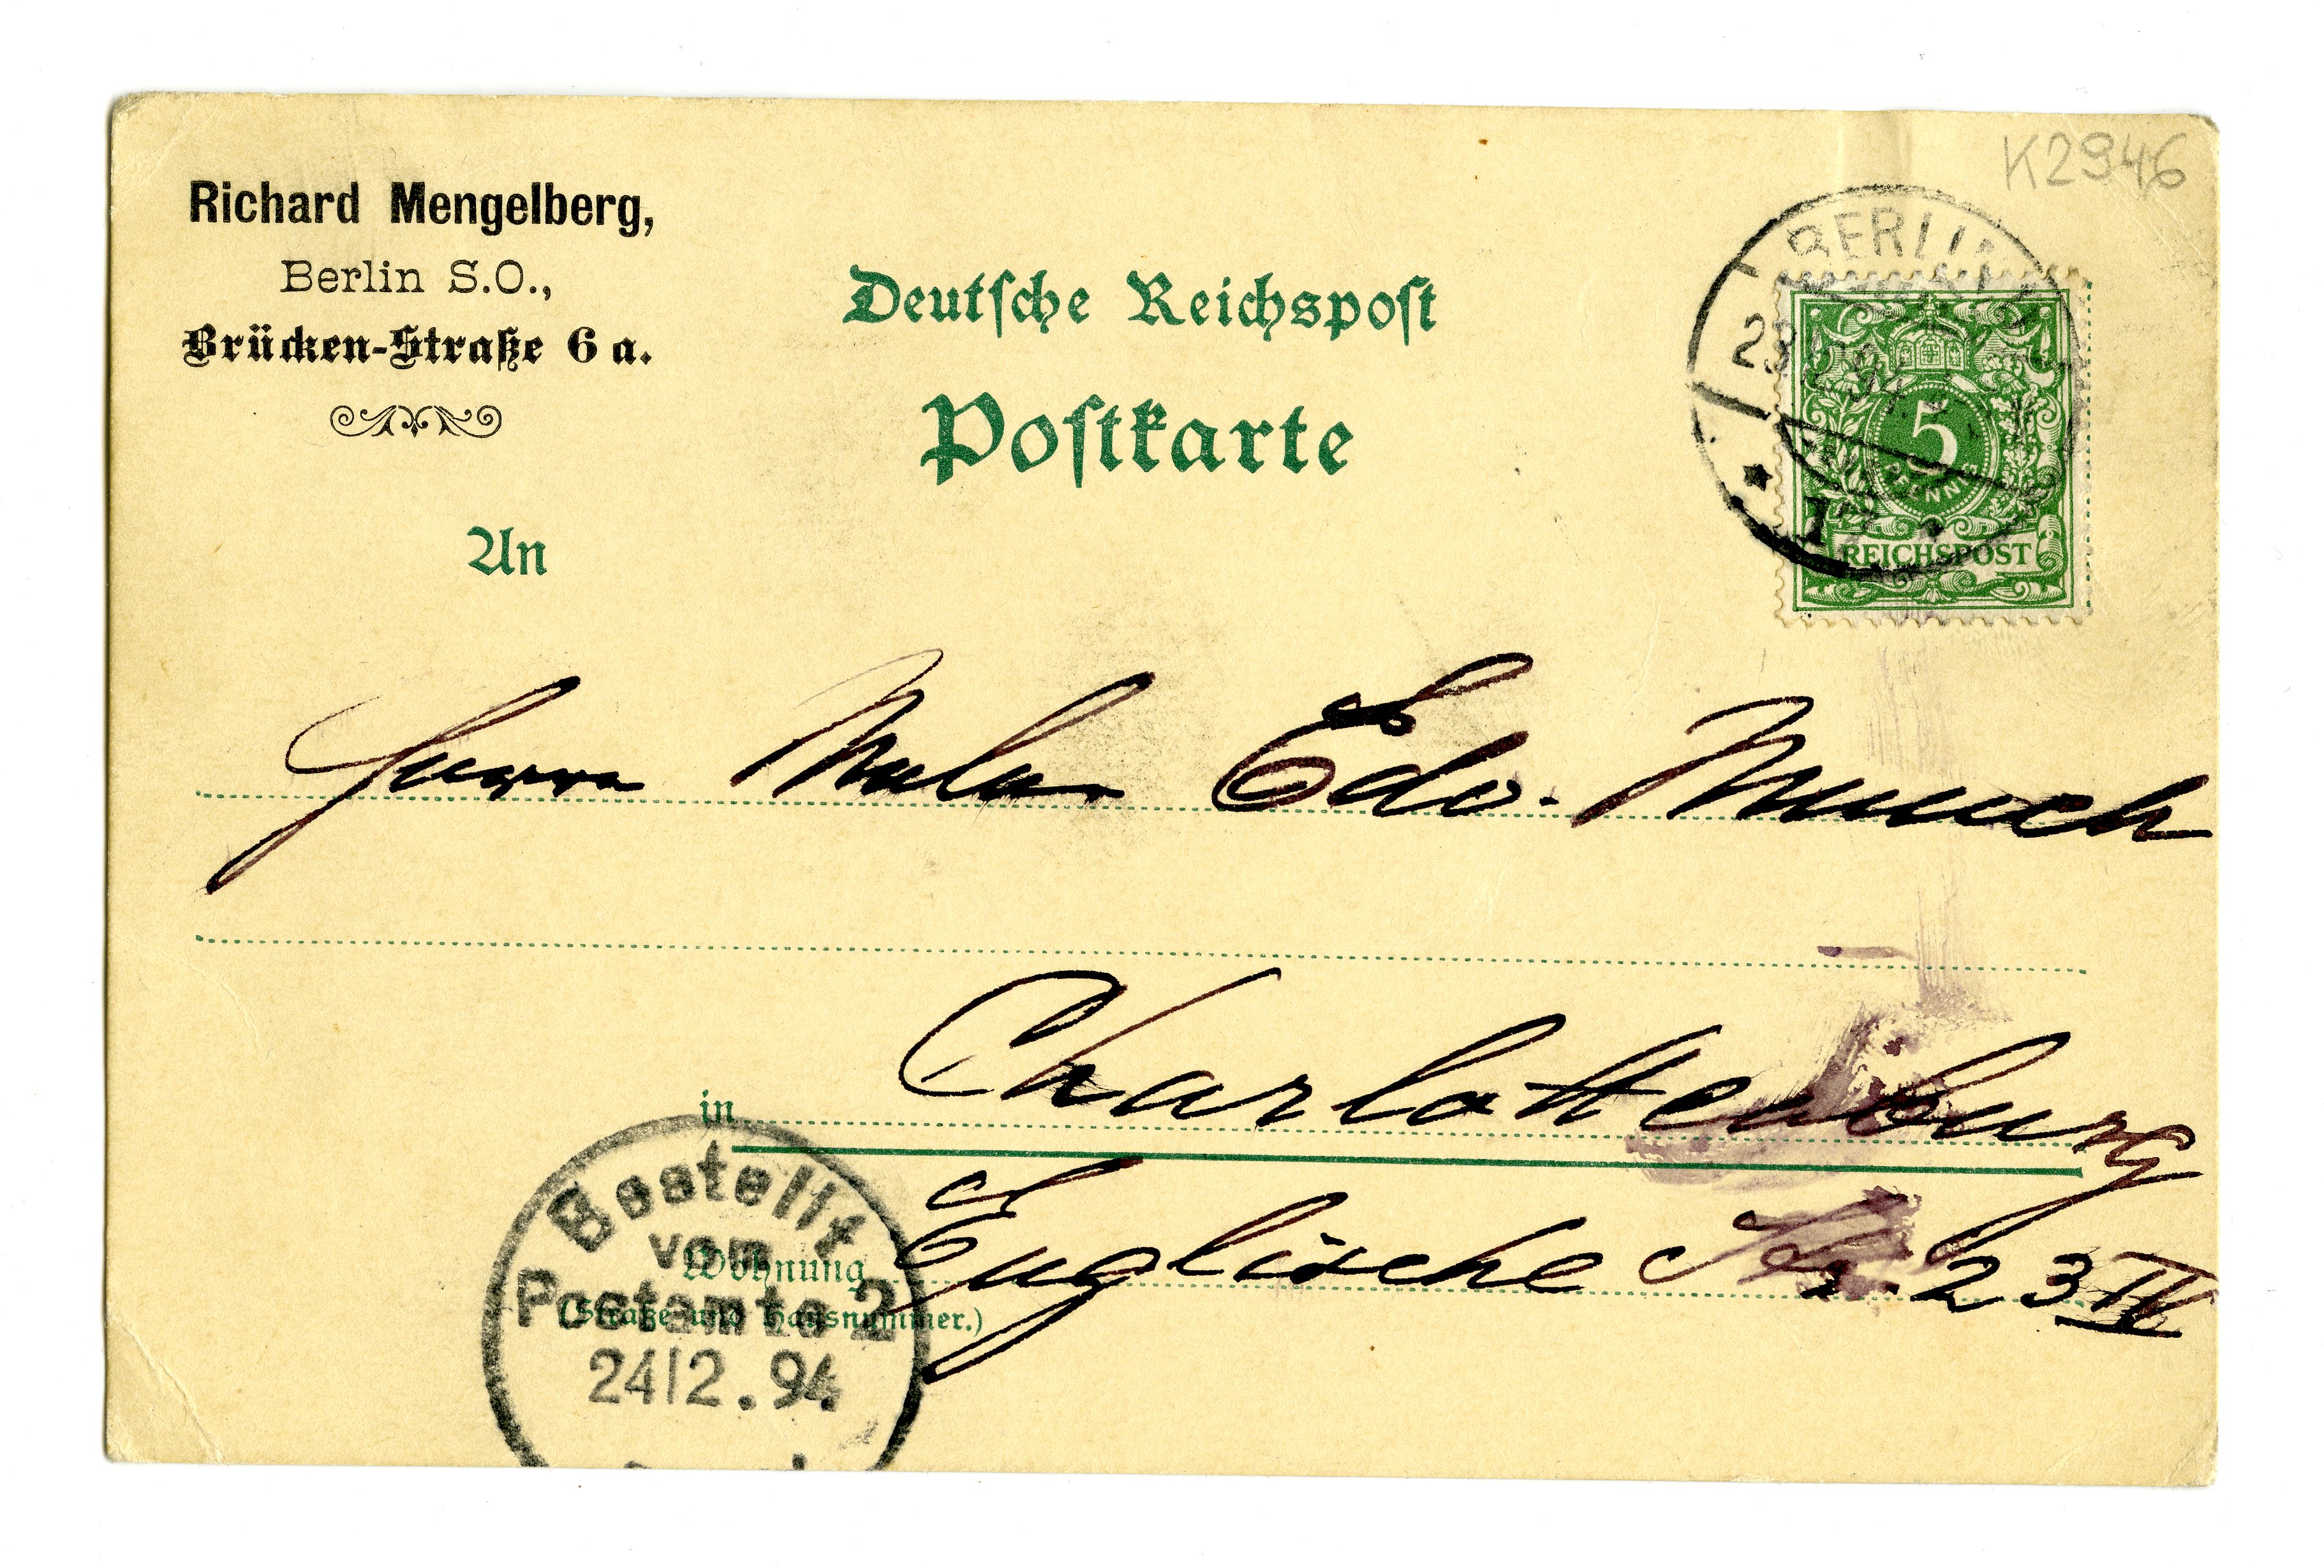 K2946
Richard Mengelberg,
Berlin S.O.,
Brücken-Straße 6a.
Deutsche Reichspost
Postkarte
BERLIN
5
PFENNIG
REICHSPOST
An
Herrn Maler Edv. Munch
in Charlottenburg
Wohnung Englische Str. 23 IV
(Straße und Hausnummer.)
Bestellt
vom
Postamte 2
24/2.94